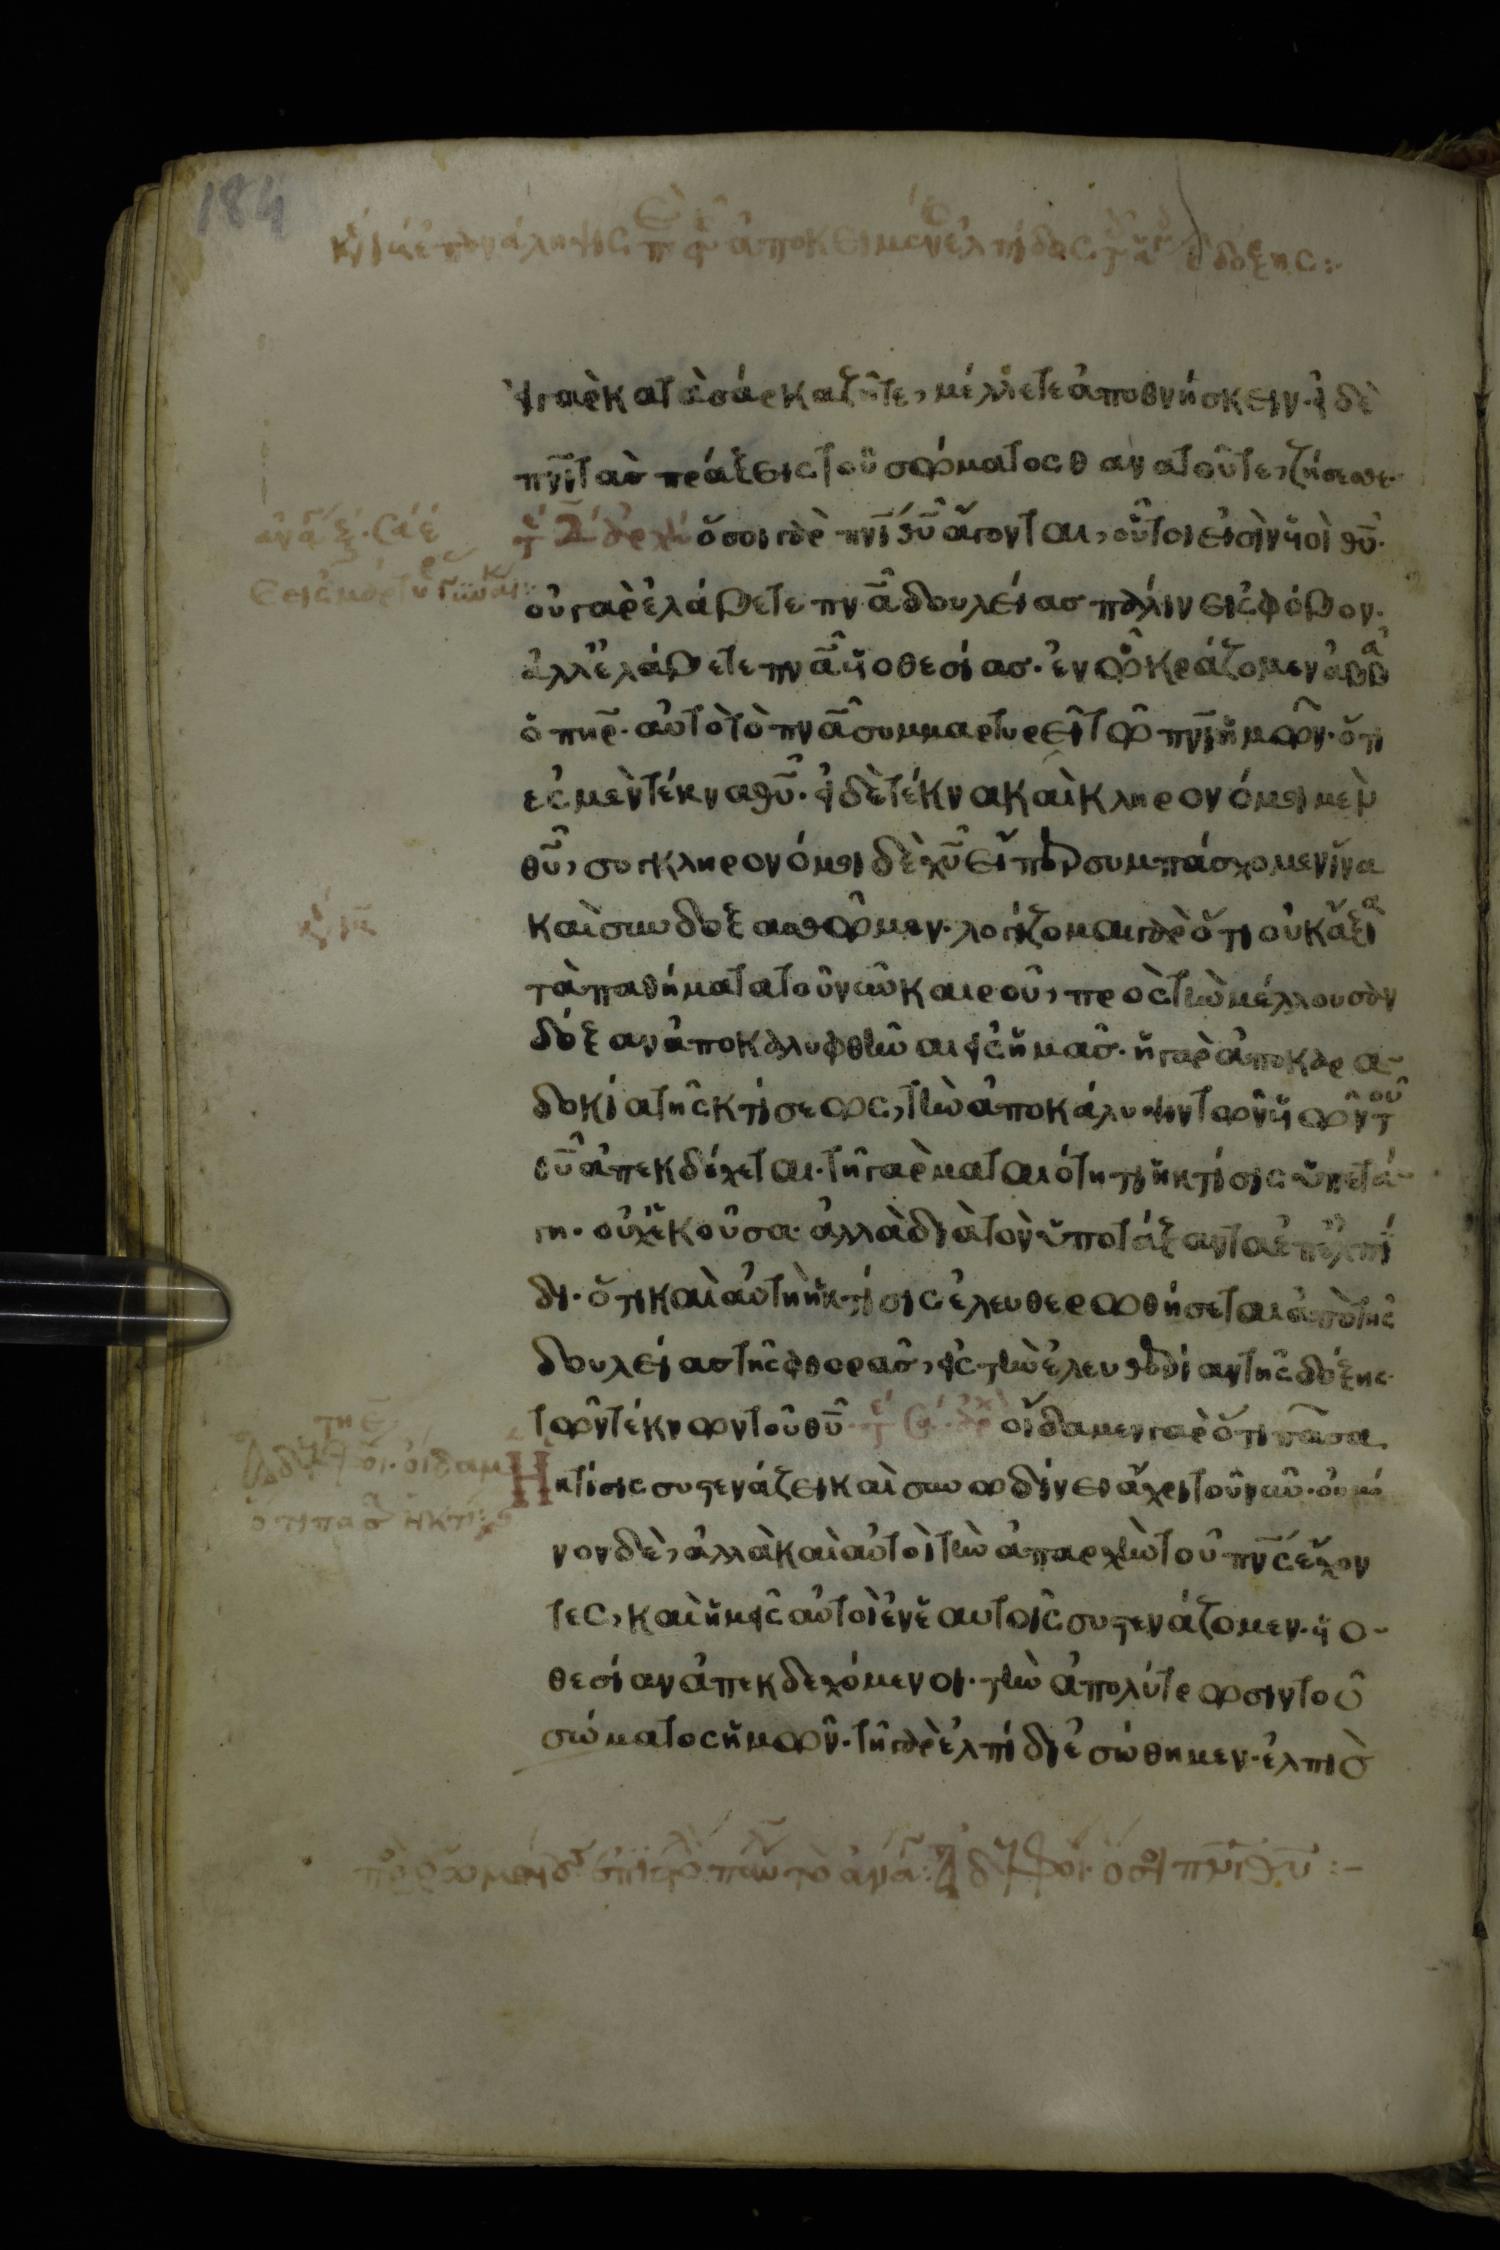 184
εἰ γὰρ κατὰ σάρκα ζῆτε, μέλλετε ἀποθνήσκειν· εἰ δὲ
πνῑ τὰσ πράξεις τοῦ σώματος θανατοῦτε, ζήσεσθε·
ὅσοι γὰρ πνῑ θῡ ἄγονται, οὗτοι εἰσὶν υἱοὶ θῡ·
οὐ γὰρ ἐλάβετε πνᾱ δουλείασ πάλιν εἰς φόβον·
ἀλλ' ἐλάβετε πνᾱ υἱοθεσίασ· ἐν ὧ κράζομεν ἀββᾶ
ὁ πηρ̄· αὐτὸ τὸ πνᾱ συμμαρτυρεῖ τῶ πνῑ ἡμῶν· ὅτι
ἐσμὲν τέκνα θῡ· εἰ δὲ τέκνα καὶ κληρονόμοι μὲν
θῡ, συγκληρονόμοι δὲ χῡ εἴπερ συμπάσχομεν ἵνα
καὶ συνδοξασθῶμεν· λογίζομαι γὰρ ὅτι οὐκ ἄξια
τὰ παθήματα τοῦ νῦν καιροῦ, πρὸς τὴν μέλλουσαν
δόξαν ἀποκαλυφθῆναι εἰς ἡμᾶσ· ἡ γὰρ ἀποκαρα-
δοκία τῆς κτίσεως, τὴν ἀποκάλυψιν τῶν υἱῶν τοῦ
θῡ ἀπεκδέχεται· τῆ γὰρ ματαιότητι ἡ κτίσις ὑπετά-
γη· οὐχ ἑκοῦσα· ἀλλὰ διὰ τὸν ὑποτάξαντα ἐπ' ἐλπί
δι· ὅτι καὶ αὐτὴ ἡ κτίσις ἐλευθερωθήσεται ἀπὸ τῆς
δουλείασ τῆς φθορᾶσ, εἰς τὴν ἐλευθερίαν τῆς δόξης
τῶν τέκνων τοῦ θῡ· οἴδαμεν γὰρ ὅτι πᾶσα
Η κτίσις συστενάζει καὶ συνωδίνει ἄχρι τοῦ νῦν· οὐ μό
νον δὲ, ἀλλὰ καὶ αὐτοὶ τὴν ἀπαρχὴν τοῦ πνς̄ ἔχον
τες, καὶ ἡμεῖς αὐτοὶ ἐν ἑαυτοῖς συστενάζομεν· υἱο-
θεσίαν ἀπεκδεχόμενοι· τὴν ἀπολύτρωσιν τοῦ
σώματος ἡμῶν· τῆ γὰρ ἐλπίδι ἐσώθημεν· ἐλπὶσ